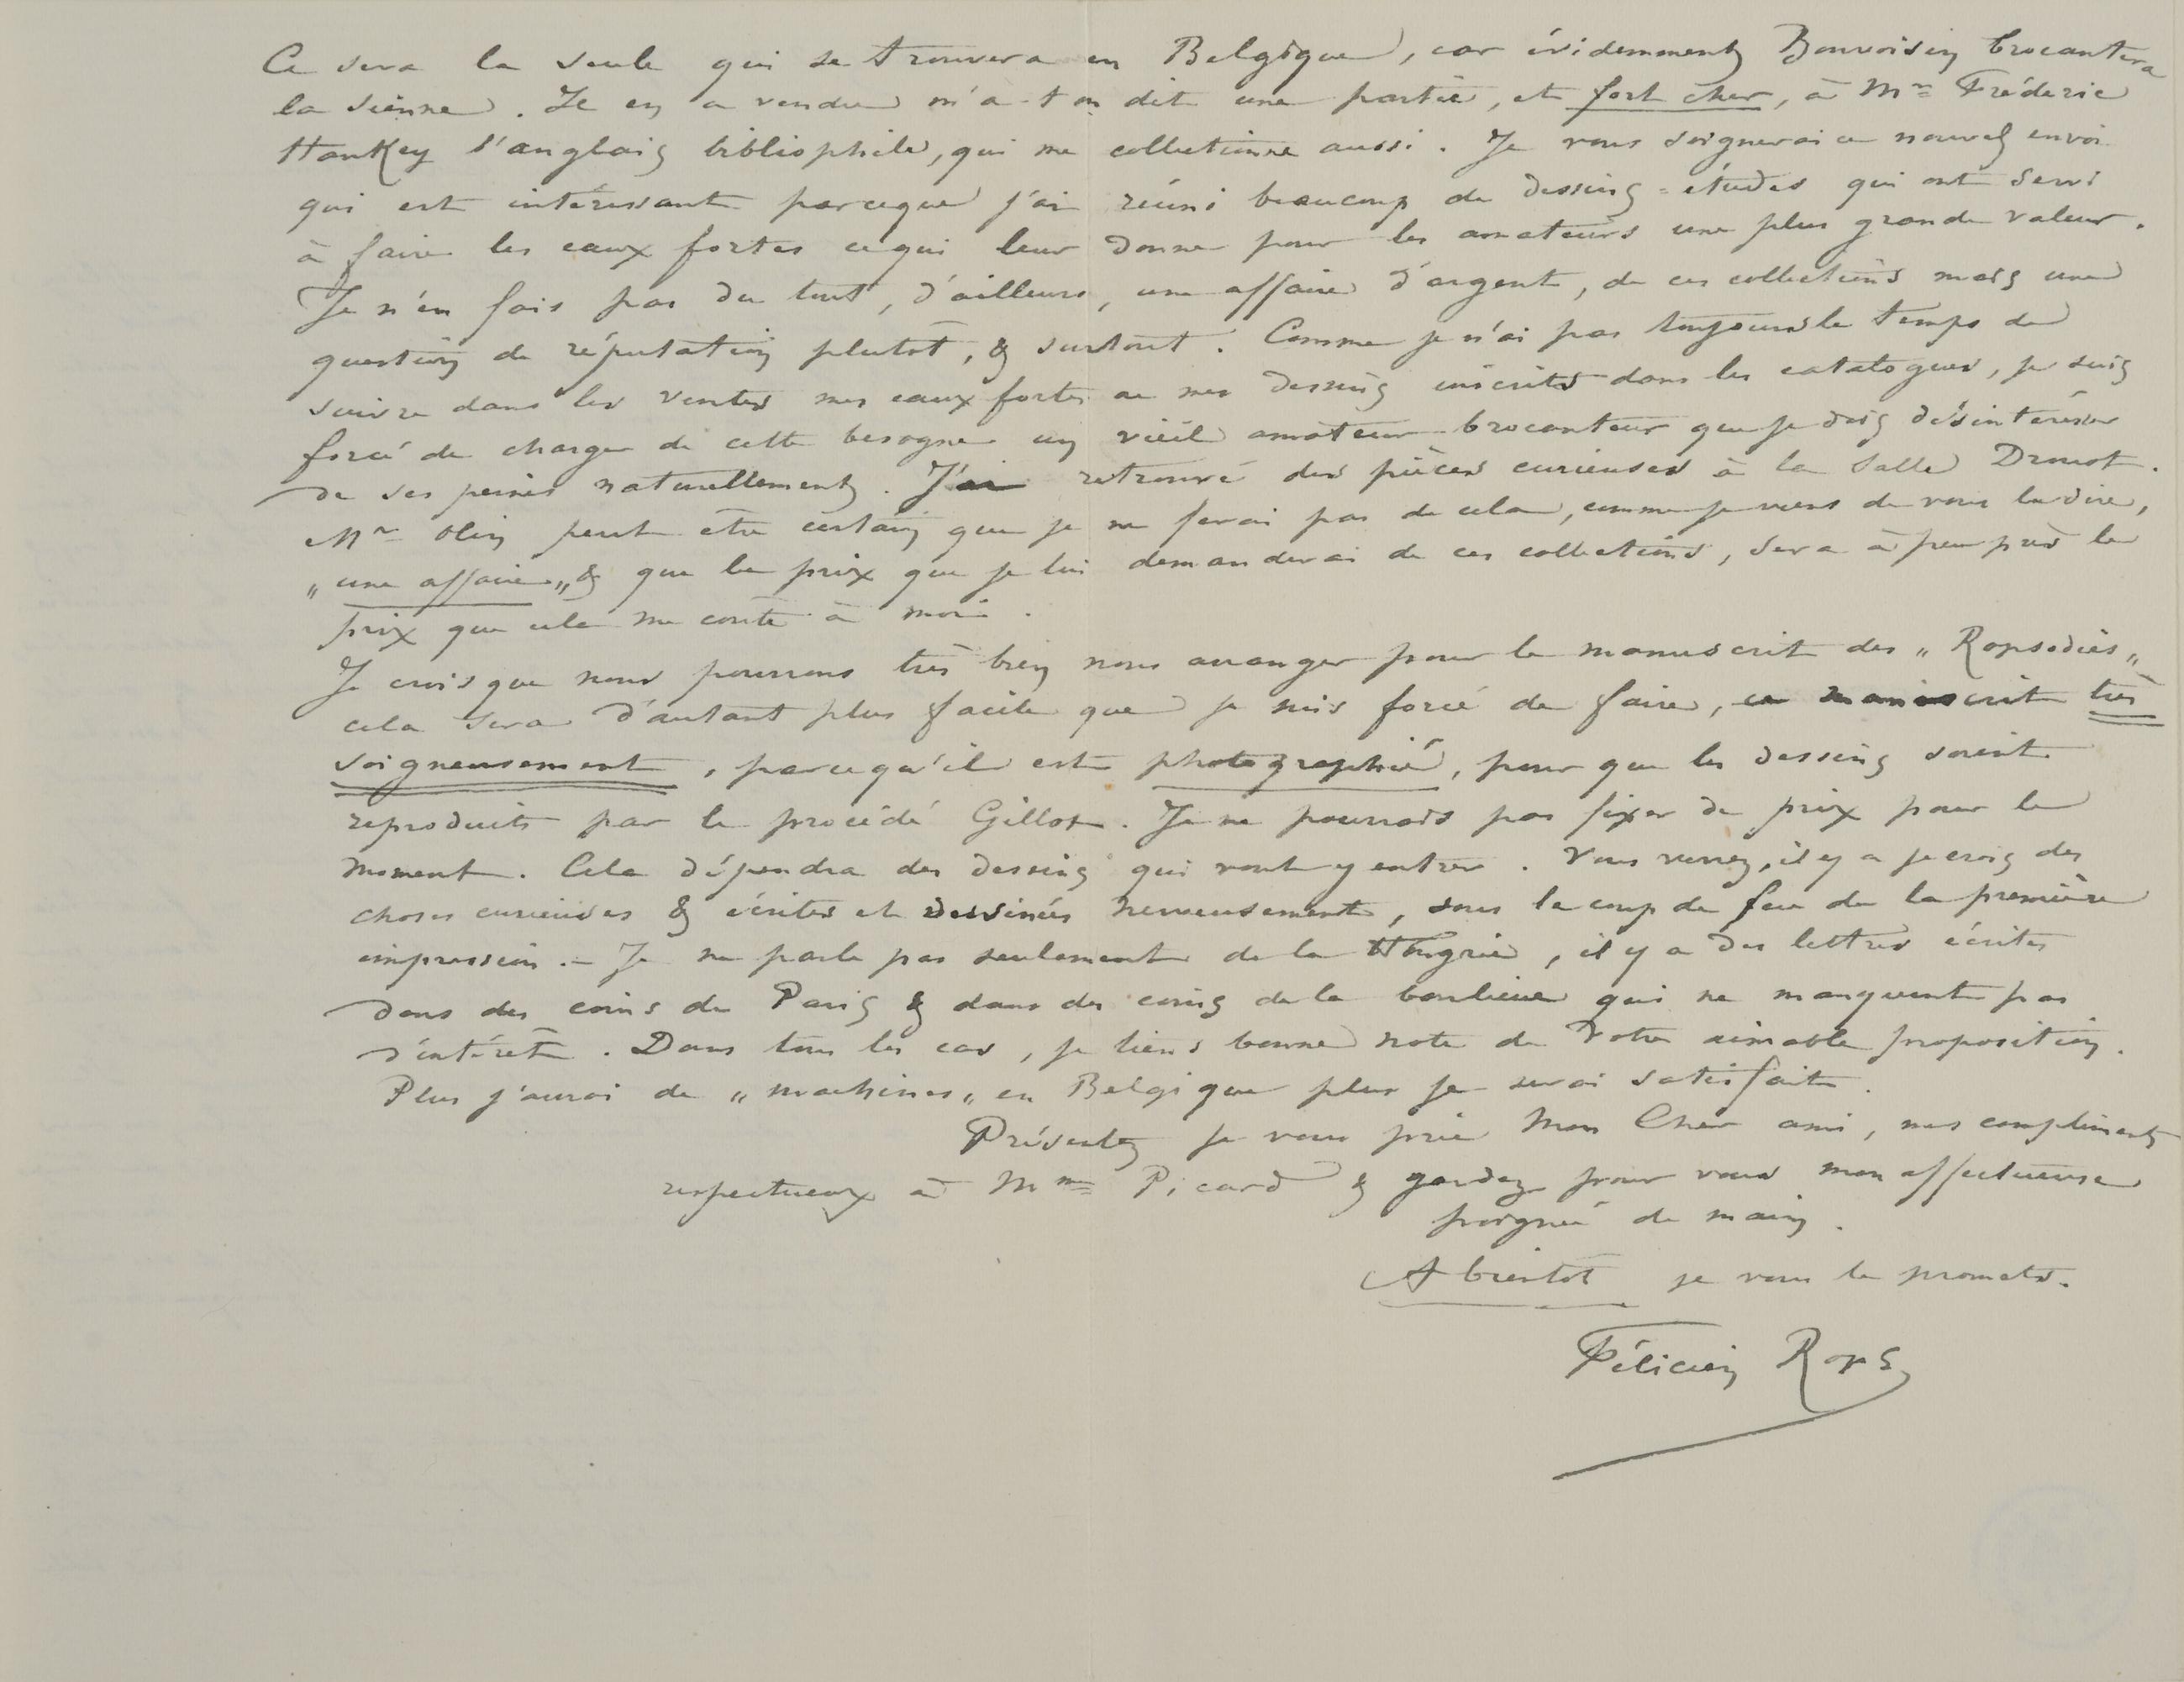 Ce sera la seule qui se trouvera en Belgique, car évidemment Bonvoisin brocantera
la sienne. Il en a vendu m'a-t'on dit une partie, et fort cher, à Mr Fréderic
Hankey l'anglais bibliophile, qui me collectionne aussi. Je vous soignerai ce nouvel envoi
qui est intéressant parceque j'ai réuni beaucoup de dessins-études qui ont servi
à faire les eaux fortes ce qui leur donne pour les amateurs une plus grande valeur.
Je n'en fais pas du tout, d'ailleurs, une affaire d'argent, de ces collections mais une
question de réputation plutôt, & surtout. Comme je n'ai pas toujours le temps de
suivre dans les ventes mes eaux fortes ou mes dessins inscrits dans les catalogues, je suis
forcé de charger de cette besogne un vieil amateur-brocanteur que je dois désintéresser
de ses peines naturellement. J'ai retrouvé des pièces curieuses à la Salle Drouot.
Mr Olin peut être certain que je ne ferai pas de cela, comme je viens de vous le dire,
„une affaire„ & que le prix que je lui demanderai de ces collections, sera à peu près le
prix que cela me coute à moi.
Je crois que nous pourrons très bien nous arranger pour le manuscrit des „Ropsodies„
cela sera d'autant plus facile que je suis forcé de faire, ce manuscrit très
soigneusement, parcequ'il est photographié, pour que les dessins soient
reproduits par le procédé Gillot. Je ne pourrais pas fixer de prix pour le
moment. Cela dépendra des dessins qui vont y entrer. Vous verrez, il y a je crois des
choses curieuses & écrites et dessinées nerveusement, sous le coup de feu de la première
impression. – Je ne parle pas seulement de la Hongrie, il y a des lettres écrites
dans des coins de Paris & dans des coins de la banlieue qui ne manquent pas
d'intérêt. Dans tous les cas, je tiens bonne note de Votre aimable proposition.
Plus j'aurai de „machines„ en Belgique plus je serai satisfait.
Présentez je vous prie Mon Cher ami, mes compliments
respectueux à Mme Picard & gardez pour vous mon affectueuse
poignée de main.
A bientot je vous le promets.
Félicien Rops